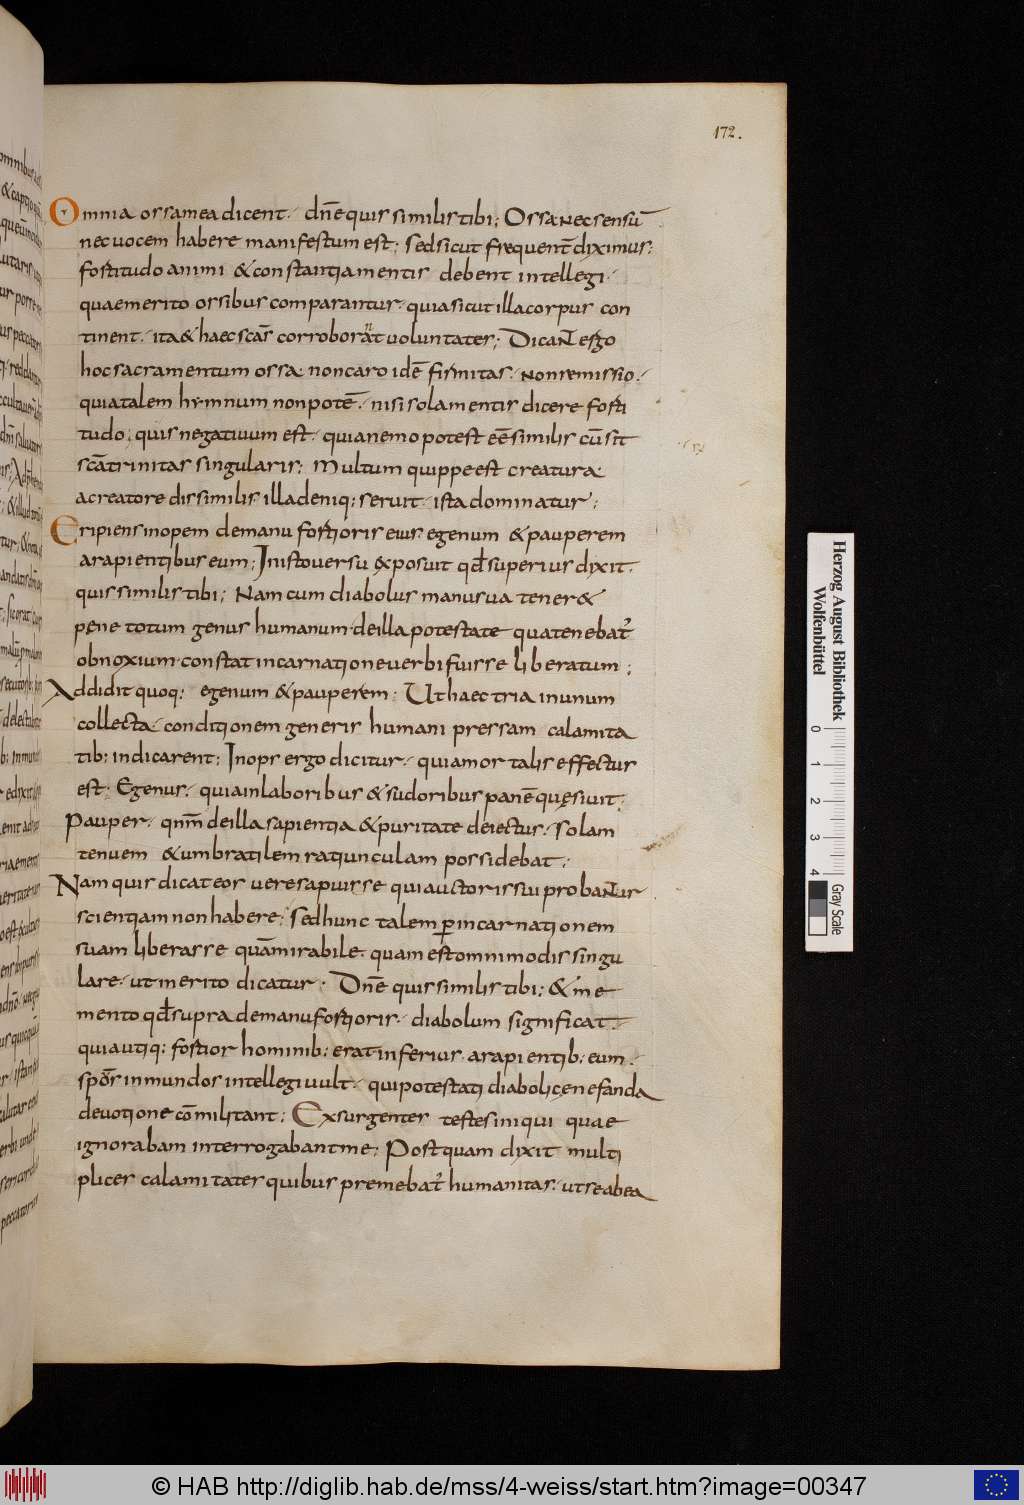 172.
Omnia ossa mea dicent · dñe quis similis tibi; Ossa nec sensū
nec uocem habere manifestum est; sed sicut frequent̄ diximus;
fortitudo animi & constantia mentis debent intellegi ·
quae merito orsibus comparantur · quia sicut illa corpus con
tinent · ita & haec scās corroborat uoluntates; Dicant ergo
hoc sacramentum ossa non caro idē firmitas · non remissio ·
quia talem hymnum non potē · nisi sola mentis dicere forti
tudo; quis negatiuum est · quia nemo potest eē similis cū sit
scā trinitas singularis; Multum quippe est creatura
a creatore dissimilis · illa deniq; seruit · ista dominatur;
Eripiens inopem de manu fortioris eius · egenum & pauperem
a rapientibus eum; In isto uersu exposuit qđ superius dixit ·
quis similis tibi; Nam cum diabolus manu sua tener&
pene totum genus humanum · de illa potestate qua tenebat̄
obnoxium · constat incarnatione uerbi fuisse liberatum;
Addidit quoq; egenum & pauperem; Ut haec tria in unum
collecta · conditionem generis humani pressam calamita
tib; indicarent; Inops ergo dicitur · quia mortalis effectus
est; Egenus · quia in laboribus & sudoribus panē quęsiuit;
Pauper · qnm̄ de illa sapientia & puritate deiectus · solam
tenuem & umbratilem ratiunculam possidebat;
Nam quis dicat eos uere sapuisse qui auctoris sui probantur
scientiam non habere; Sed hunc talem p incarnationem
suam liberasse quā mirabile · quam est omnimodis singu
lare · ut merito dicatur; Dñe quis similis tibi; & me
mento qđ supra de manu fortioris · diabolum significat ·
quia utiq; fortior hominib; erat inferius a rapientib; eum ·
spōs inmundos intellegi uult · qui potestati diabolicę nefanda
deuotione cōmilitant; Exsurgentes testes iniqui quae
ignorabam interrogabant me; Postquam dixit multi
plices calamitates quibus premebat̄ humanitas · ut se ab ea
Herzog August Bibliothek
Wolfenbüttel
0 1 2 3 4
Gray Scale
© HAB http://diglib.hab.de/mss/4-weiss/start.htm?image=00347